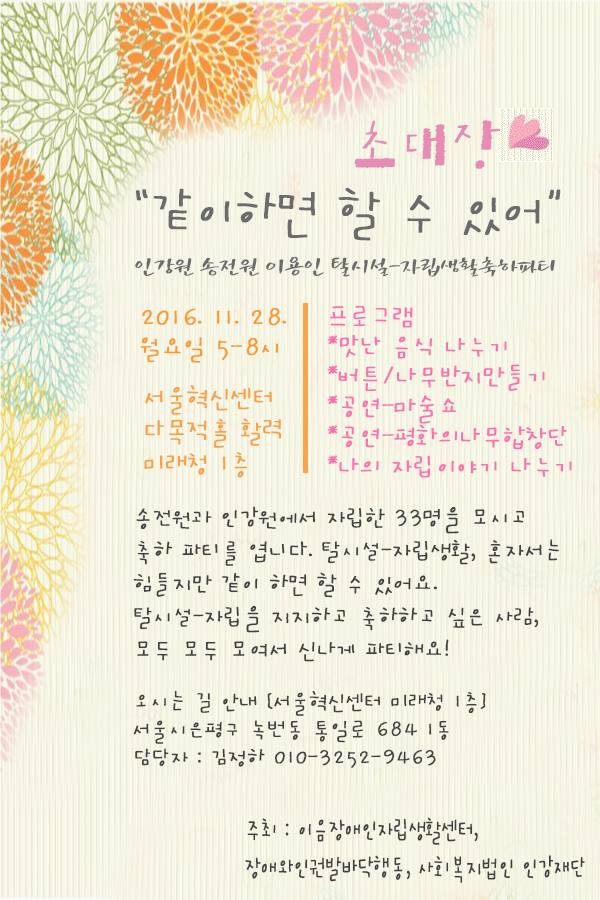 초대장
"같이하면 할 수 있어"
인강원 송전원 이용인 탈시설-자립생활축하파티
2016. 11. 28.
월요일 5-8시
서울혁신센터
다목적홀 활력
미래청 1층
프로그램
*맛난 음식 나누기
*버튼/나무반지만들기
*공연-마술쇼
*공연-평화의나무합창단
*나의 자립이야기 나누기
송전원과 인강원에서 자립한 33명을 모시고
축하 파티를 엽니다. 탈시설-자립생활, 혼자서는
힘들지만 같이 하면 할 수 있어요.
탈시설-자립을 지지하고 축하하고 싶은 사람,
모두 모두 모여서 신나게 파티해요!
오시는 길 안내 [서울혁신센터 미래청 1층]
서울시은평구 녹번동 통일로 684 1동
담당자 : 김정하 010-3252-9463
주최 : 이음장애인자립생활센터,
장애와인권발바닥행동, 사회복지법인 인강재단